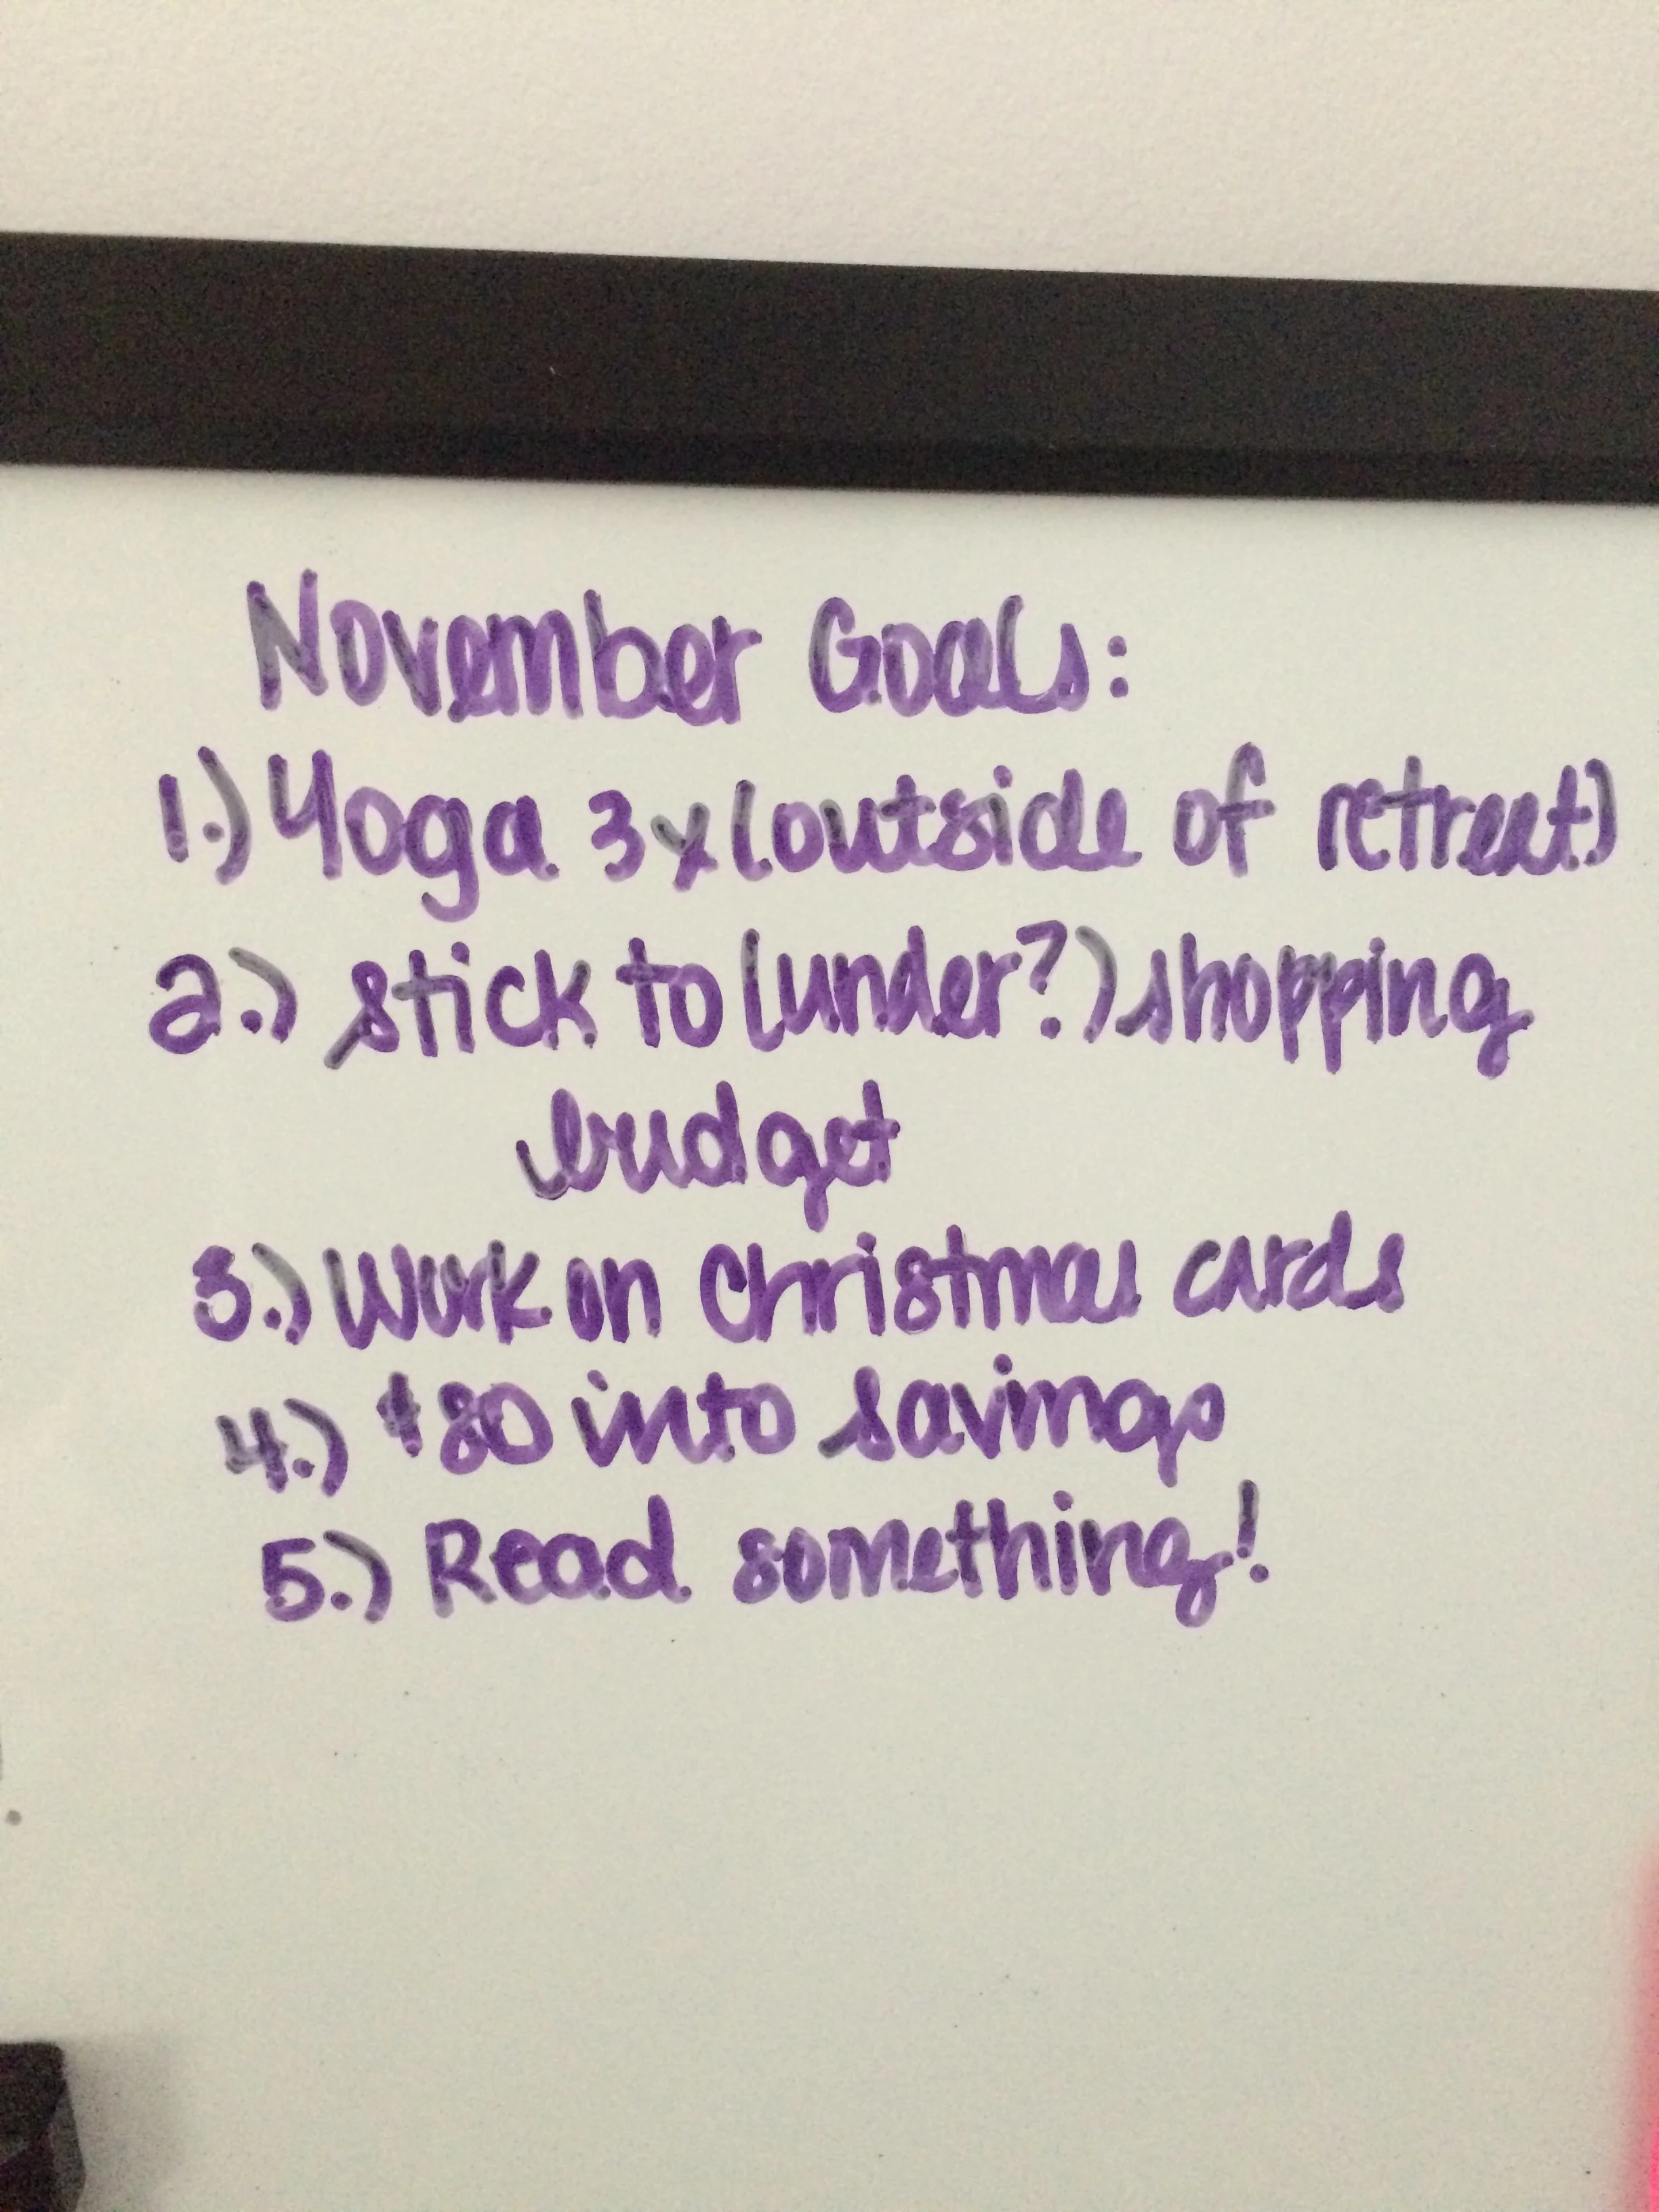 November Goals:
1.) Yoga 3x (outside of retreat)
2.) stick to (under?) shopping
budget
3.) Work on Christmas cards
4.) $80 into savings
5.) Read something!